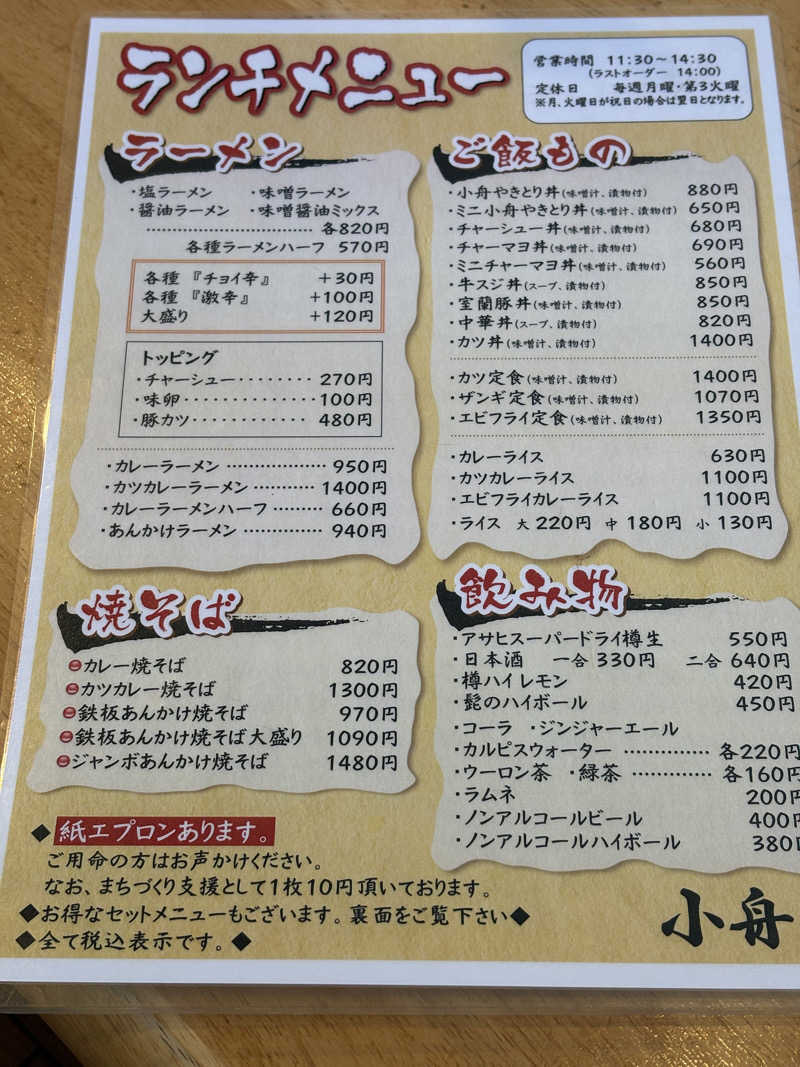 ランチメニュー
営業時間 11:30～14:30
(ラストオーダー 14:00)
定休日 毎週月曜・第3火曜
※月、火曜日が祝日の場合は翌日となります。
ラーメン
・塩ラーメン ・味噌ラーメン
・醤油ラーメン ・味噌醤油ミックス
各820円
各種ラーメンハーフ 570円
各種『チョイ辛』 +30円
各種『激辛』 +100円
大盛り +120円
トッピング
・チャーシュー・・・・・・・・ 270円
・味卵・・・・・・・・・・・・・ 100円
・豚カツ・・・・・・・・・・・・ 480円
・カレーラーメン ・・・・・・・・・・・・・・・ 950円
・カツカレーラーメン ・・・・・・・・・・ 1400円
・カレーラーメンハーフ ・・・・・・・・ 660円
・あんかけラーメン ・・・・・・・・・・・・・ 940円
ご飯もの
・小舟やきとり丼(味噌汁、漬物付) 880円
・ミニ小舟やきとり丼(味噌汁、漬物付) 650円
・チャーシュー丼(味噌汁、漬物付) 680円
・チャーマヨ丼(味噌汁、漬物付) 690円
・ミニチャーマヨ丼(味噌汁、漬物付) 560円
・牛スジ丼(スープ、漬物付) 850円
・室蘭豚丼(味噌汁、漬物付) 850円
・中華丼(スープ、漬物付) 820円
・カツ丼(味噌汁、漬物付) 1400円
・カツ定食(味噌汁、漬物付) 1400円
・ザンギ定食(味噌汁、漬物付) 1070円
・エビフライ定食(味噌汁、漬物付) 1350円
・カレーライス 630円
・カツカレーライス 1100円
・エビフライカレーライス 1100円
・ライス 大 220円 中 180円 小 130円
焼そば
カレー焼そば 820円
カツカレー焼そば 1300円
鉄板あんかけ焼そば 970円
鉄板あんかけ焼そば大盛り 1090円
ジャンボあんかけ焼そば 1480円
飲み物
・アサヒスーパードライ樽生 550円
・日本酒 一合 330円 二合 640円
・樽ハイレモン 420円
・髭のハイボール 450円
・コーラ ・ジンジャーエール
・カルピスウォーター ・・・・・・・・・・・・ 各220円
・ウーロン茶 ・緑茶 ・・・・・・・・・・・・ 各160円
・ラムネ 200円
・ノンアルコールビール 400円
・ノンアルコールハイボール 380円
◆紙エプロンあります。
ご用命の方はお声かけください。
なお、まちづくり支援として1枚10円頂いております。
◆お得なセットメニューもございます。裏面をご覧下さい◆
◆全て税込表示です。◆
小舟